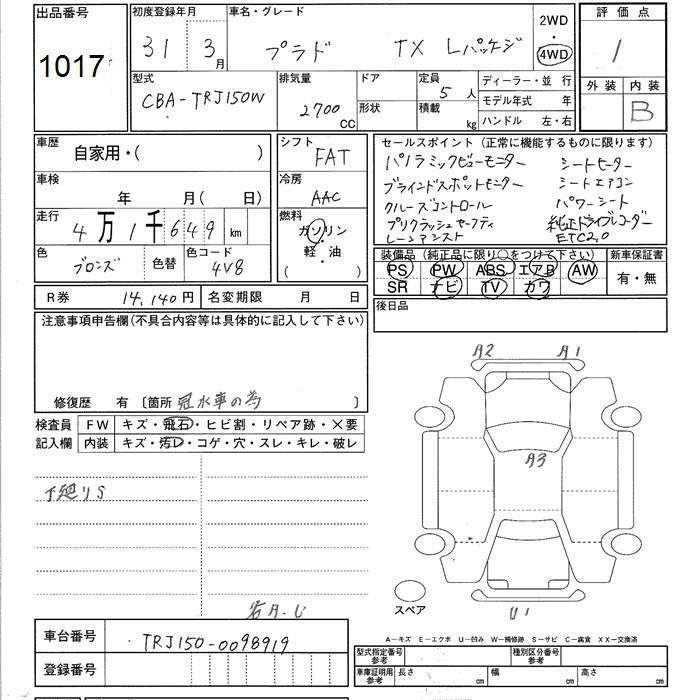 出品番号 1017
初度登録年月 31 年 3 月
車名・グレード プラド TX Lパッケージ
2WD・4WD
評価点 1
外装 内装 B
型式 CBA-TRJ150W
排気量 2700 CC
ドア 形状
定員 5 人 積載 kg
ディーラー・並 行
モデル年式 年
ハンドル 左・右
車歴 自家用・( )
車検 年 月( 日)
走行 4万1千649 km
色 ブロンズ 色替 色コード 4V8
シフト FAT
冷房 AAC
燃料 ガソリン・軽・油 ( )
セールスポイント（正常に機能するものに限ります）
パノラミックビューモニター シートヒーター
ブラインドスポットモニター シートエアコン
クルーズコントロール パワーシート
プリクラッシュセーフティ 純正ドライブレコーダー
レーンアシスト ETC2.0
装備品（純正品に限り○をつけて下さい） 新車保証書
PS PW ABS エアB AW 有・無
SR ナビ TV カワ
R券 14,140円 名変期限 月 日
後日品
注意事項申告欄(不具合内容等は具体的に記入して下さい)
修復歴 有 〔箇所 冠水車の為 〕
検査員 FW キズ・飛石・ヒビ割・リペア跡・×要
記入欄 内装 キズ・汚レ・コゲ・穴・スレ・キレ・破レ
下廻りS
A2 A1
A3
U1
スペア
A-キズ E-エクボ U-凹み W-補修跡 S-サビ C-腐食 XX-交換済
車台番号 TRJ150-0098919
登録番号
型式指定番号 参考 種別区分番号 参考
車庫証明用 参考 長さ cm 幅 cm 高さ cm